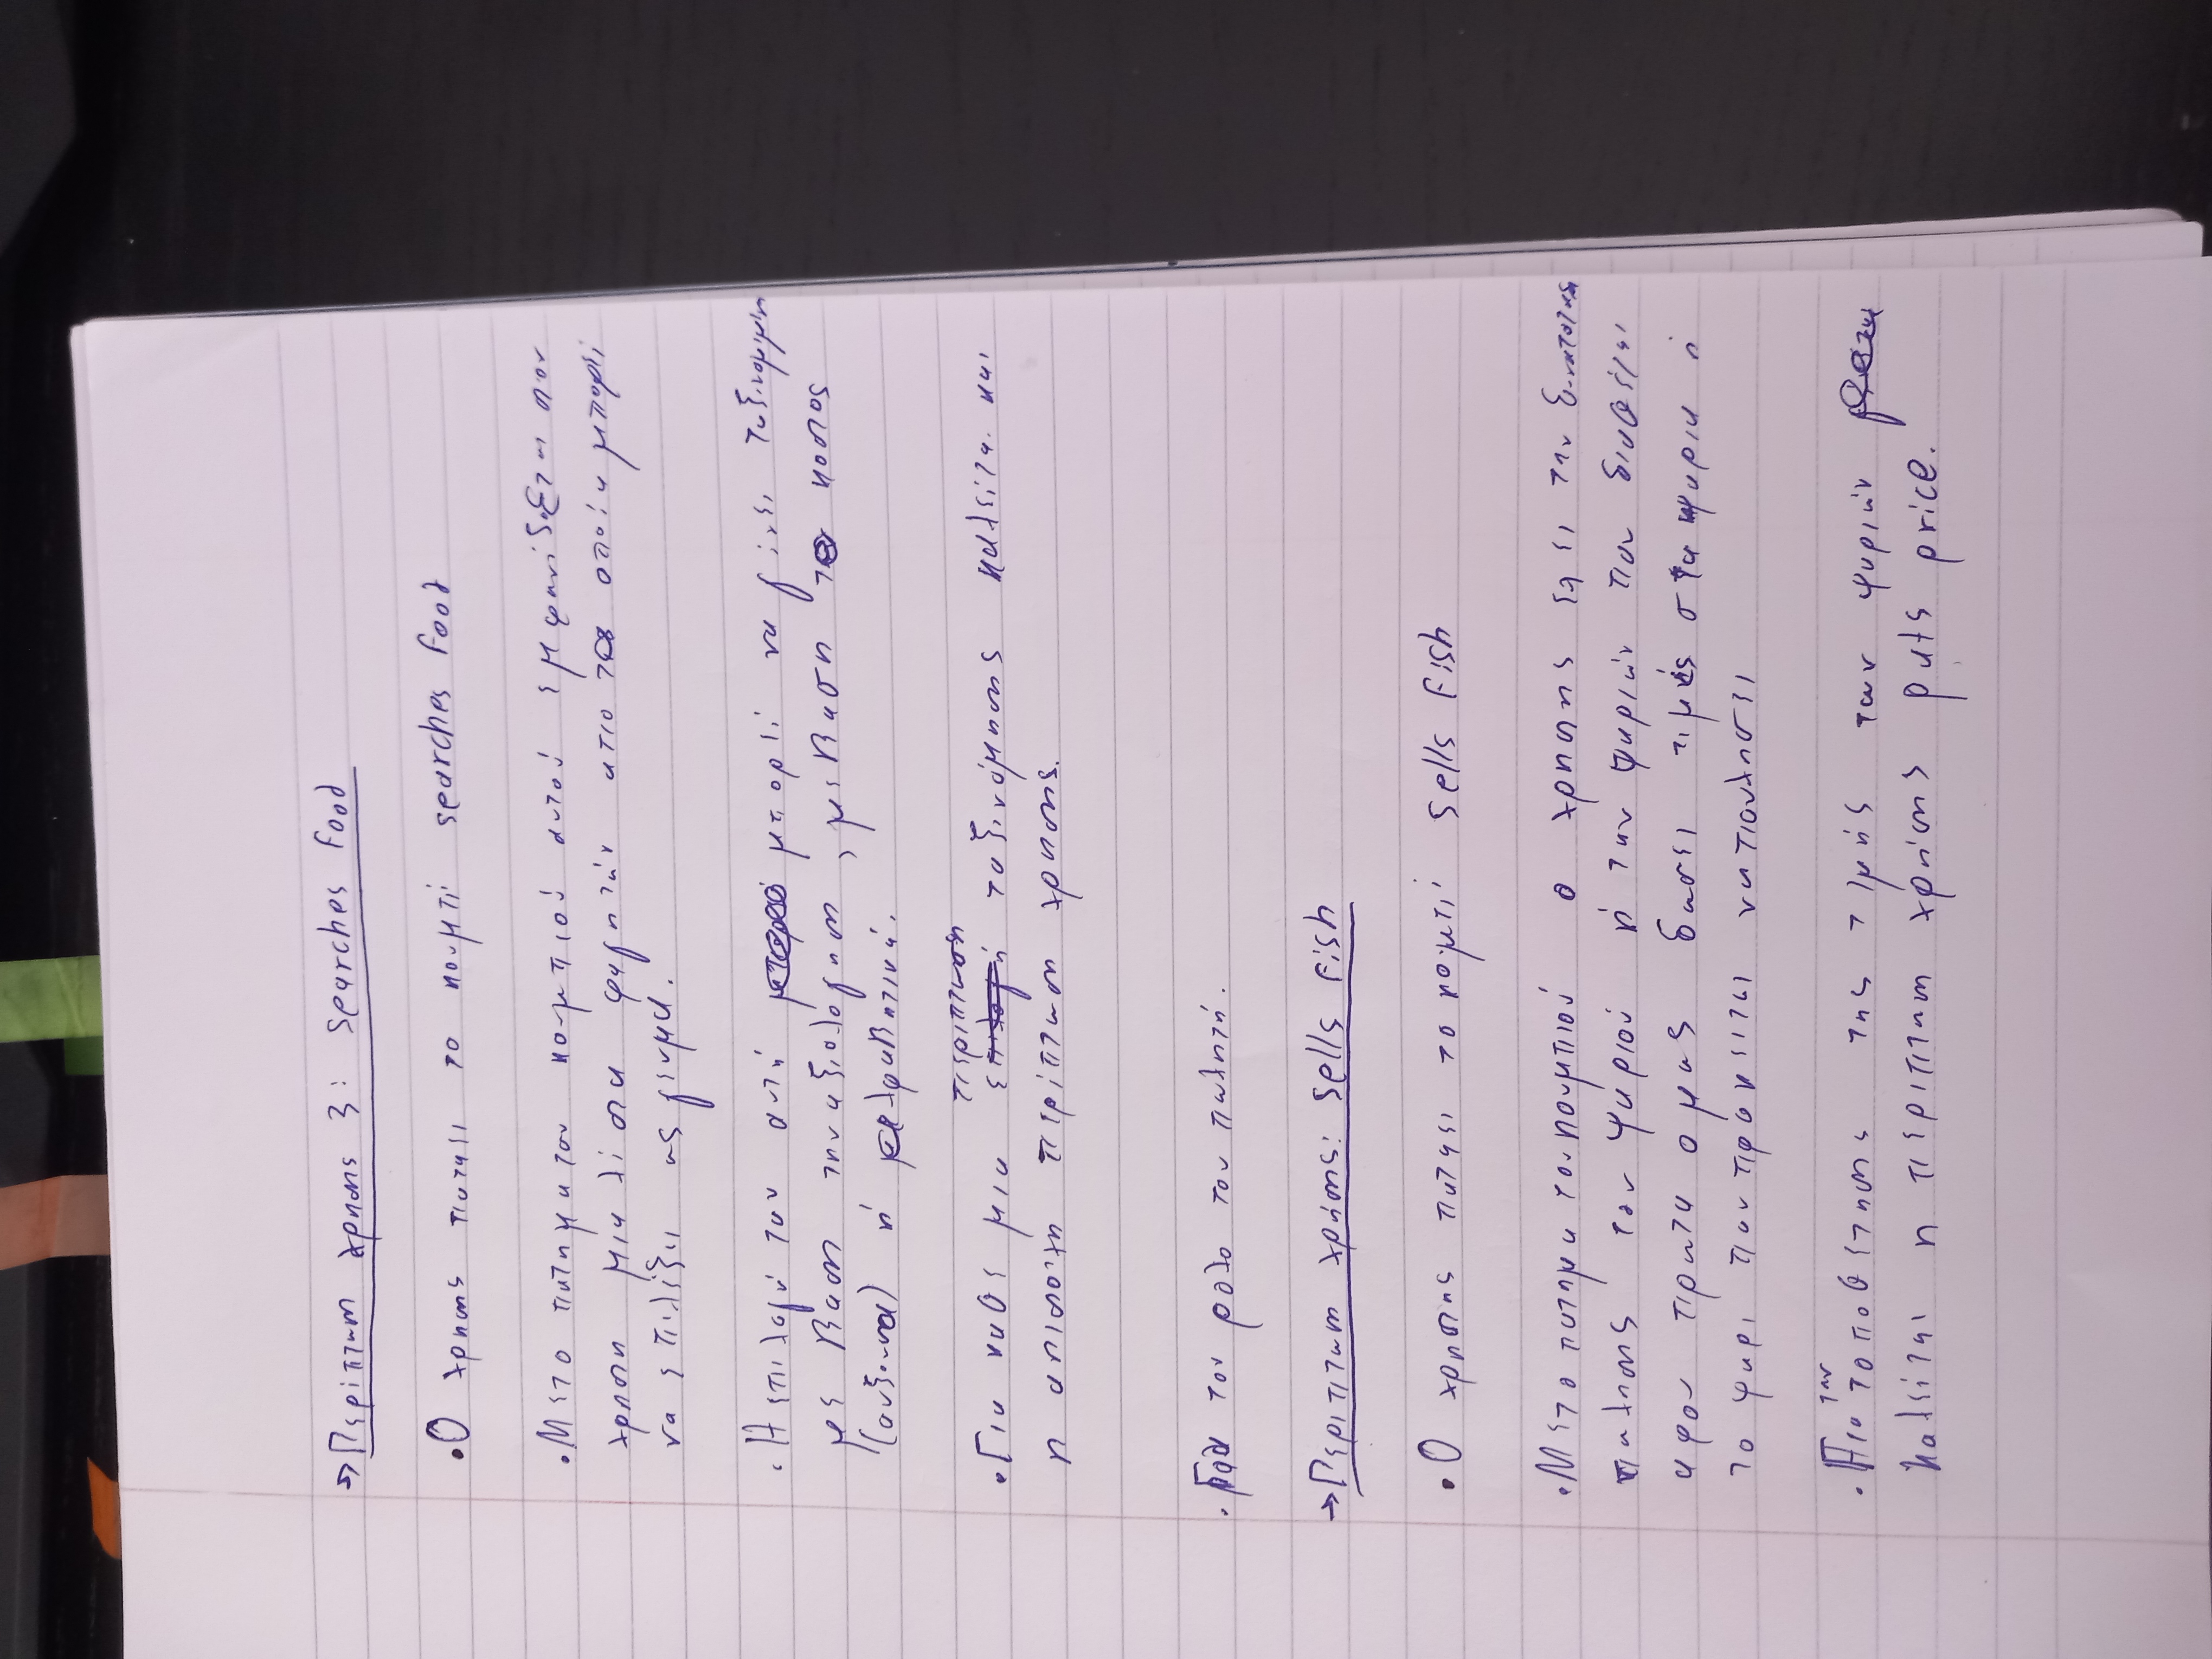 → Περίπτωση χρησης 3: searches food
• Ο χρησης παταει το κουμπί searches food
• Με το πατημα του κουμπιού αυτού εμφανίζεται στον
χρηστη μια λίστα φαγητών απο τα οποία μπορεί
να επιλέξει ως γευμα.
• Η επιλογή του αυτή μπορεί να γίνει ταξινομιμενη
με βαση την αξιολογηση, με βαση το κοστος
(αυξουσα) ή αλφαβητικά.
περιπτωση
• Για καθε μια ταξινόμησης καλείται και
η αντιστοιχη περίπτωση χρησης.
• Για τον ρολο του πωλητή.
→ Περιπτωση χρήσης: sells fish
• Ο χρηστης παταει το κουμπί sells fish
• Με το πατημα του κουμπιού ο χρηστης εχει την δυνατοτητα
πωλησης του ψαριού ή των ψαριών που διαθέται
αφου πρωτα ο μας δωσει τιμές στα ψαρια ή
το ψαρι που προκειται να πουλησει
την
• Για τοποθέτησης της τιμής των ψαριών
καλείται η περιπτωση χρήσης puts price.